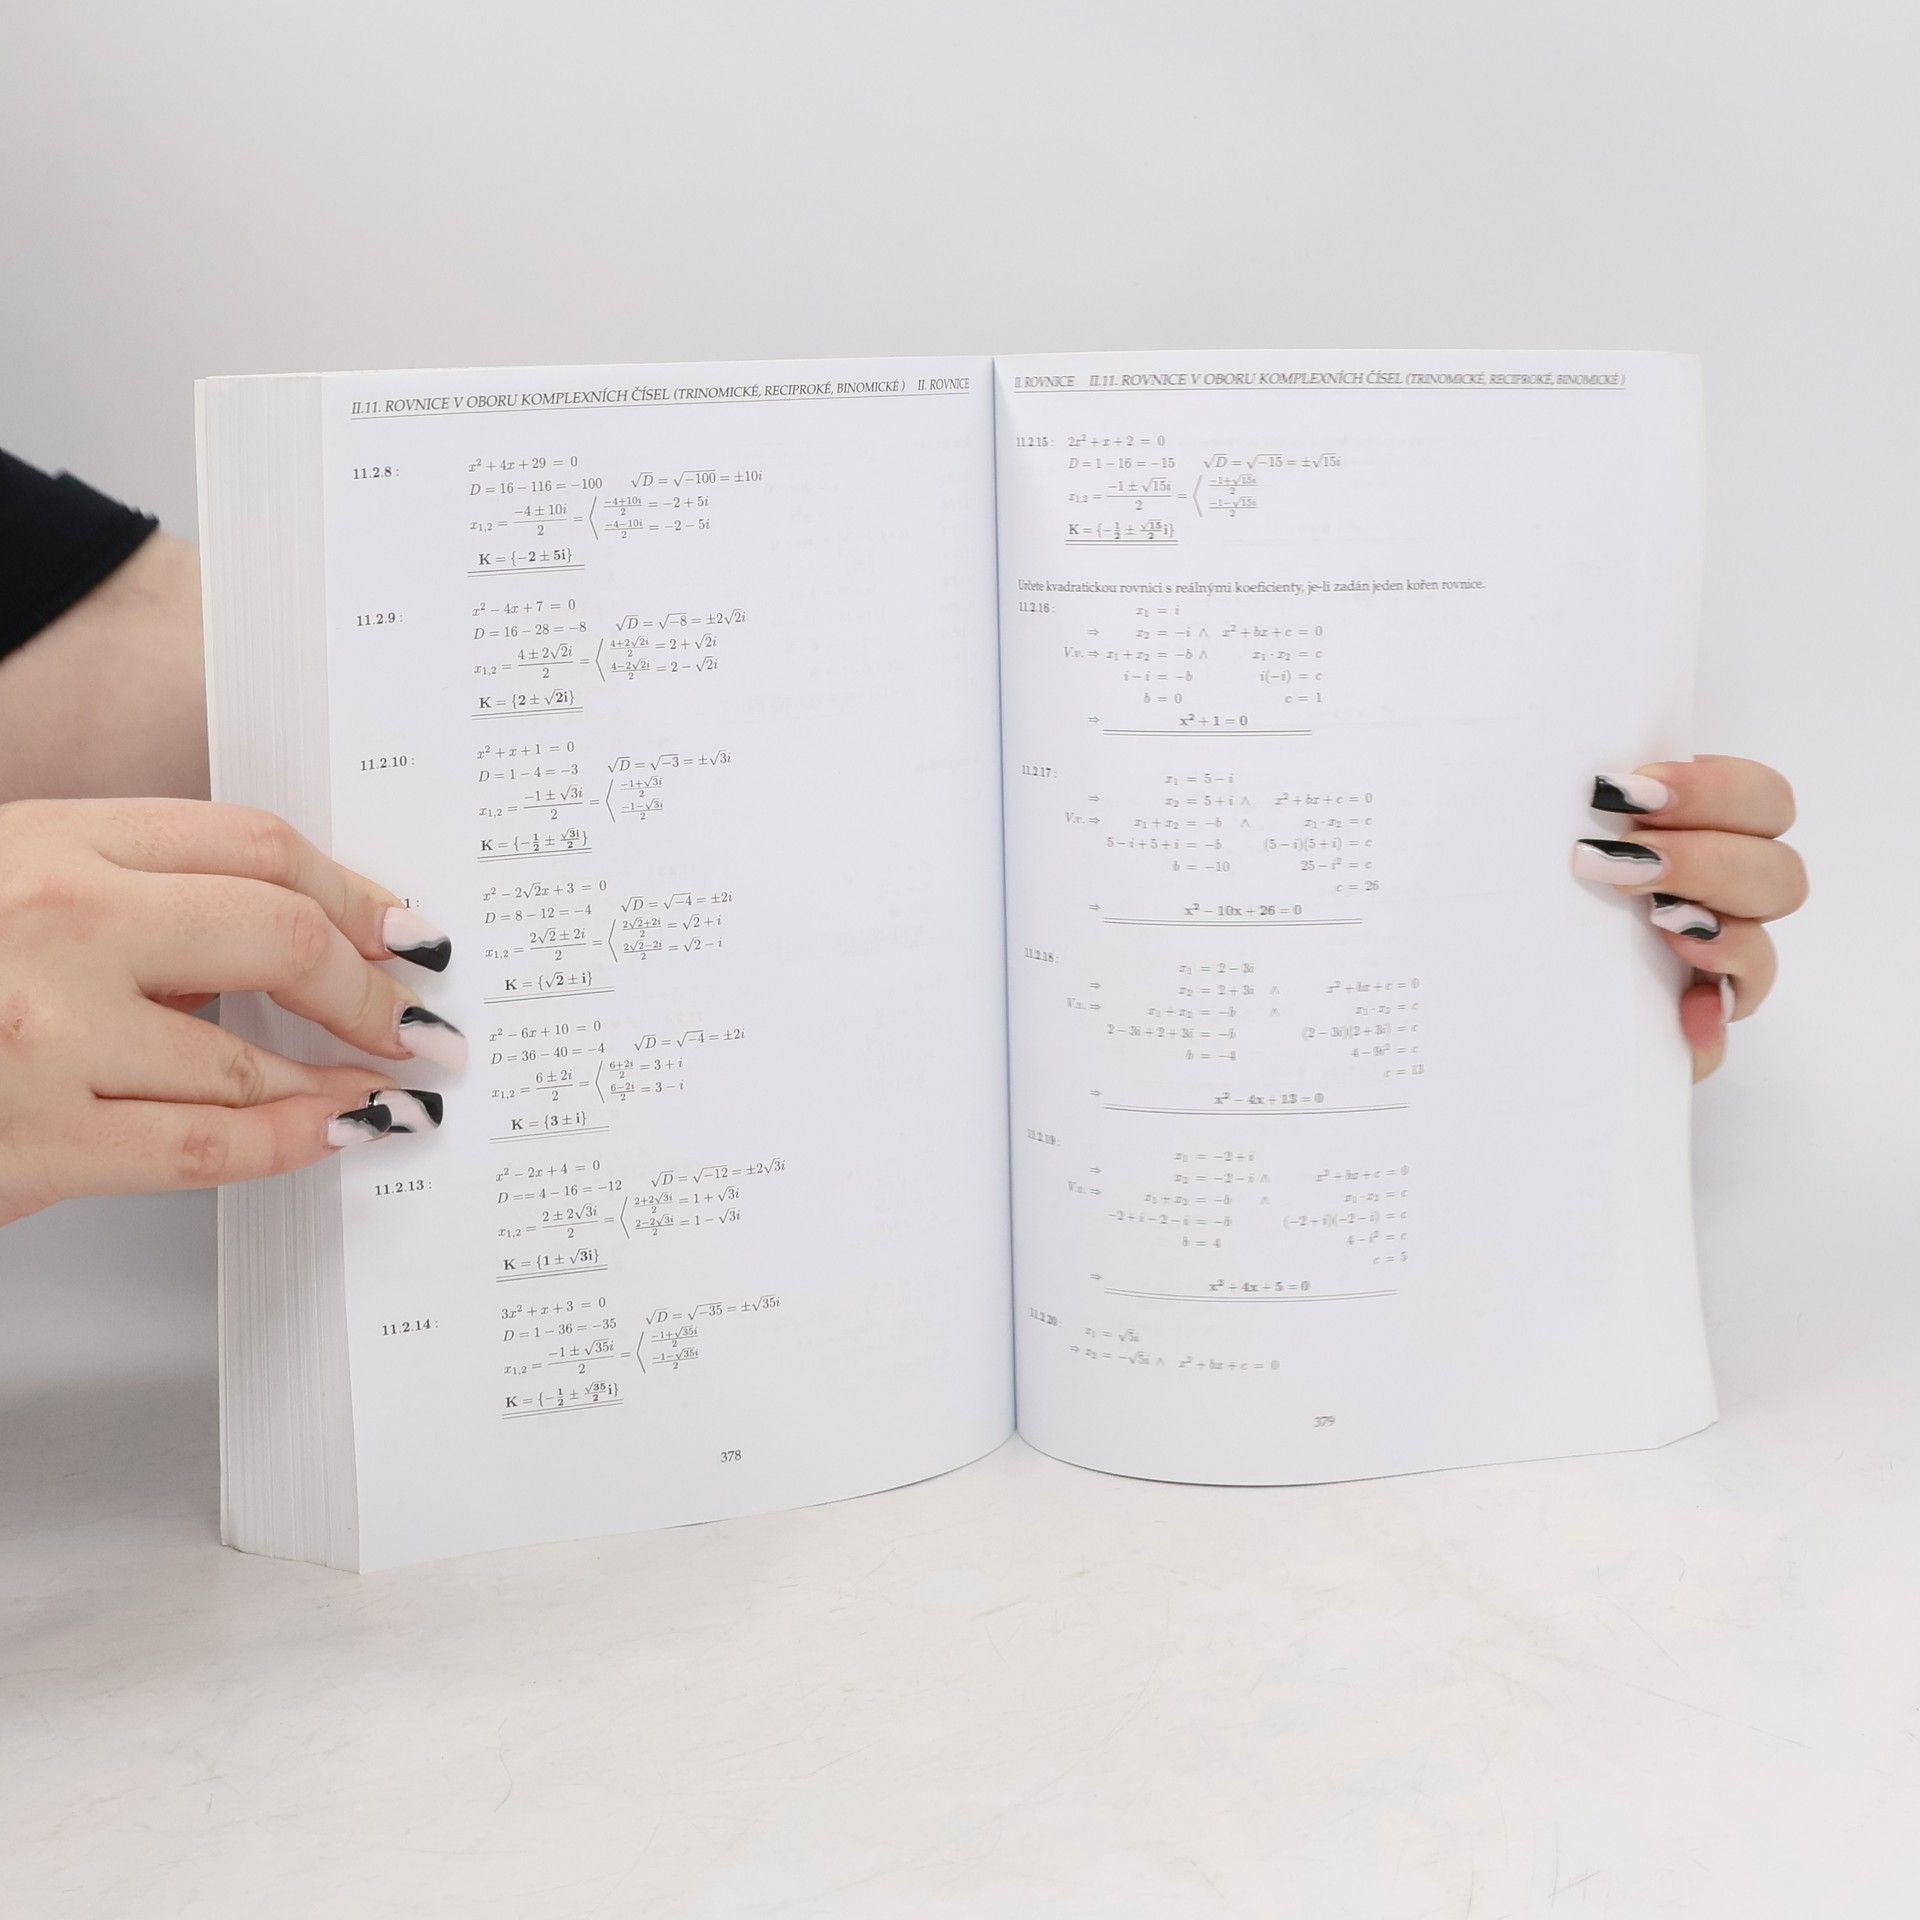 II.11. ROVNICE V OBORU KOMPLEXNÍCH ČÍSEL (TRINOMICKÉ, RECIPROKÉ, BINOMICKÉ ) II. ROVNICE
11.2.8 : x² + 4x + 29 = 0
D = 16 − 116 = −100 √D = √−100 = ±10i
x₁,₂ = (−4 ± 10i)/2 = ⟨ (−4+10i)/2 = −2 + 5i
(−4−10i)/2 = −2 − 5i
K = {−2 ± 5i}
11.2.9 : x² − 4x + 7 = 0
D = 16 − 28 = −8 √D = √−8 = ±2√2i
x₁,₂ = (4 ± 2√2i)/2 = ⟨ (4+2√2i)/2 = 2 + √2i
(4−2√2i)/2 = 2 − √2i
K = {2 ± √2i}
11.2.10 : x² + x + 1 = 0
D = 1 − 4 = −3 √D = √−3 = ±√3i
x₁,₂ = (−1 ± √3i)/2 = ⟨ (−1+√3i)/2
(−1−√3i)/2
K = {−1/2 ± √3i/2}
1 : x² − 2√2x + 3 = 0
D = 8 − 12 = −4 √D = √−4 = ±2i
x₁,₂ = (2√2 ± 2i)/2 = ⟨ (2√2+2i)/2 = √2 + i
(2√2−2i)/2 = √2 − i
K = {√2 ± i}
x² − 6x + 10 = 0
D = 36 − 40 = −4 √D = √−4 = ±2i
x₁,₂ = (6 ± 2i)/2 = ⟨ (6+2i)/2 = 3 + i
(6−2i)/2 = 3 − i
K = {3 ± i}
11.2.13 : x² − 2x + 4 = 0
D == 4 − 16 = −12 √D = √−12 = ±2√3i
x₁,₂ = (2 ± 2√3i)/2 = ⟨ (2+2√3i)/2 = 1 + √3i
(2−2√3i)/2 = 1 − √3i
K = {1 ± √3i}
11.2.14 : 3x² + x + 3 = 0
D = 1 − 36 = −35 √D = √−35 = ±√35i
x₁,₂ = (−1 ± √35i)/2 = ⟨ (−1+√35i)/2
(−1−√35i)/2
K = {−1/2 ± √35/2 i}
378
II. ROVNICE II.11. ROVNICE V OBORU KOMPLEXNÍCH ČÍSEL (TRINOMICKÉ, RECIPROKÉ, BINOMICKÉ )
11.2.15 : 2x² + x + 2 = 0
D = 1 − 16 = −15 √D = √−15 = ±√15i
x₁,₂ = (−1 ± √15i)/2 = ⟨ (−1+√15i)/2
(−1−√15i)/2
K = {−1/2 ± √15/2 i}
Určete kvadratickou rovnici s reálnými koeficienty, je-li zadán jeden kořen rovnice.
11.2.16 : x₁ = i
⇒ x₂ = −i ∧ x² + bx + c = 0
V.v. ⇒ x₁ + x₂ = −b ∧ x₁ · x₂ = c
i − i = −b i(−i) = c
b = 0 c = 1
⇒ x² + 1 = 0
11.2.17 : x₁ = 5 − i
⇒ x₂ = 5 + i ∧ x² + bx + c = 0
V.v. ⇒ x₁ + x₂ = −b ∧ x₁ · x₂ = c
5 − i + 5 + i = −b (5 − i)(5 + i) = c
b = −10 25 − i² = c
c = 26
⇒ x² − 10x + 26 = 0
11.2.18 : x₁ = 2 − 3i
⇒ x₂ = 2 + 3i ∧ x² + bx + c = 0
V.v. ⇒ x₁ + x₂ = −b ∧ x₁ · x₂ = c
2 − 3i + 2 + 3i = −b (2 − 3i)(2 + 3i) = c
b = −4 4 − 9i² = c
c = 13
⇒ x² − 4x + 13 = 0
11.2.19 : x₁ = −2 + i
⇒ x₂ = −2 − i ∧ x² + bx + c = 0
V.v. ⇒ x₁ + x₂ = −b ∧ x₁ · x₂ = c
−2 + i − 2 − i = −b (−2 + i)(−2 − i) = c
b = 4 4 − i² = c
c = 5
⇒ x² + 4x + 5 = 0
11.2.20 : x₁ = √5i
⇒ x₂ = −√5i ∧ x² + bx + c = 0
379